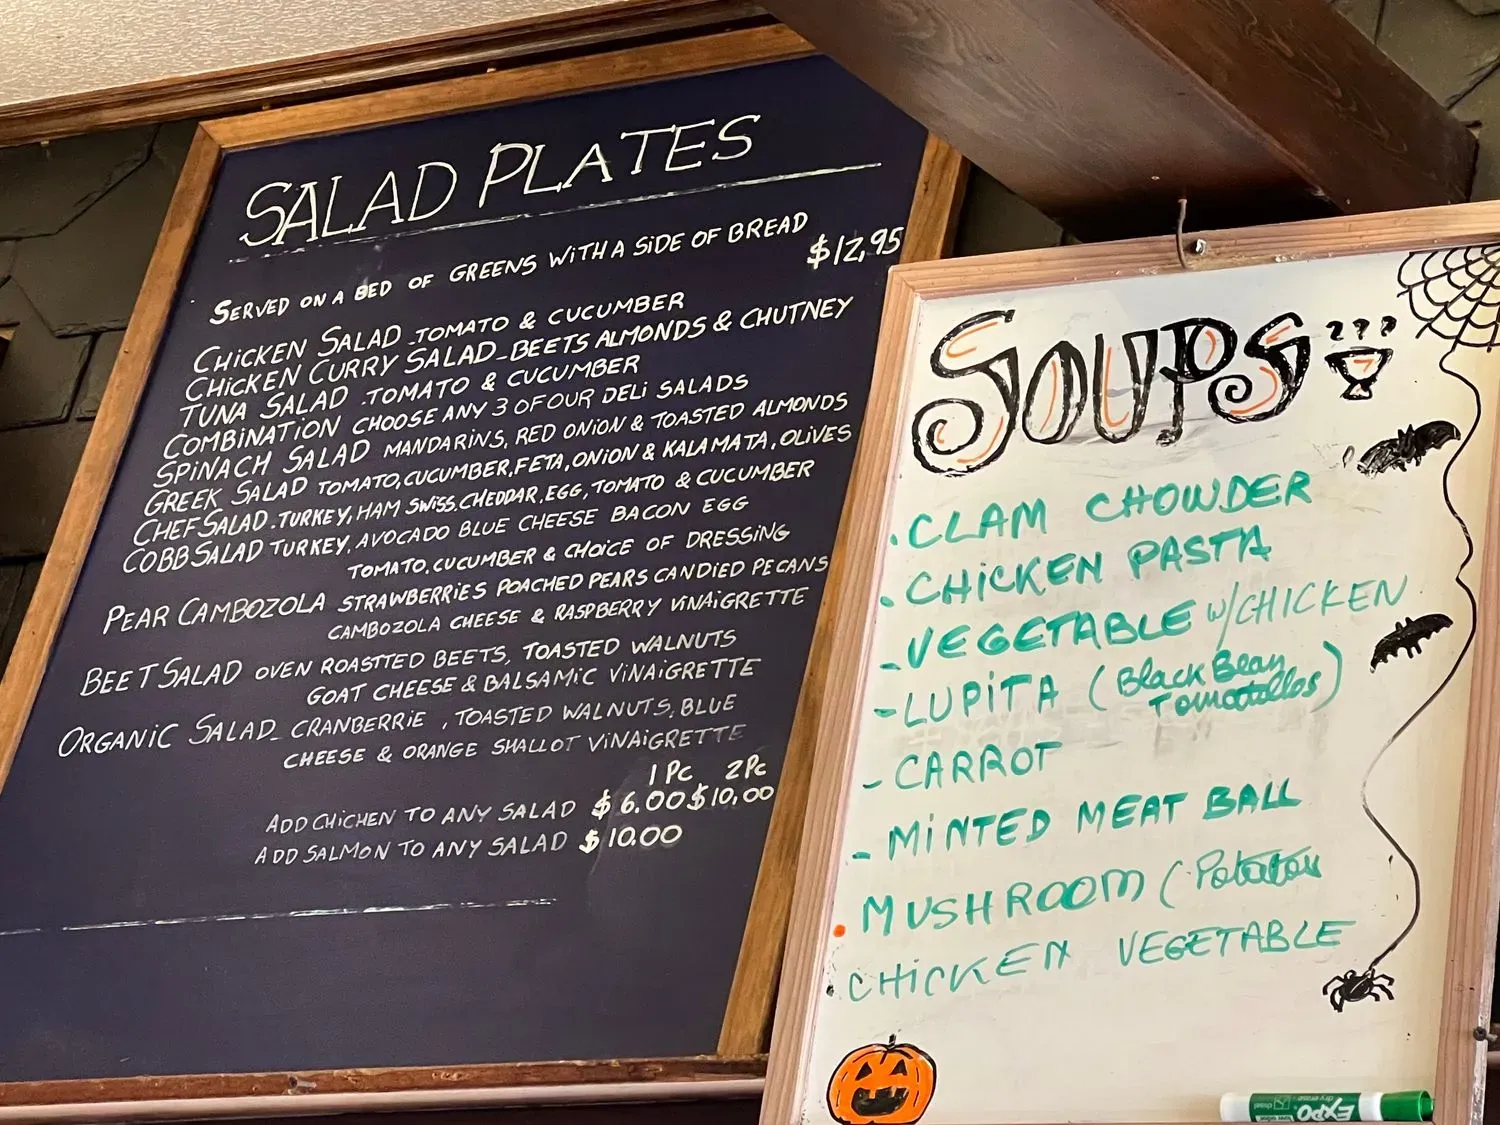 SALAD PLATES
SERVED ON A BED OF GREENS WITH A SIDE OF BREAD
$12,95
CHICKEN SALAD - TOMATO & CUCUMBER
CHICKEN CURRY SALAD - BEETS ALMONDS & CHUTNEY
TUNA SALAD . TOMATO & CUCUMBER
COMBINATION CHOOSE ANY 3 OF OUR DELI SALADS
SPINACH SALAD MANDARINS, RED ONION & TOASTED ALMONDS
GREEK SALAD TOMATO, CUCUMBER, FETA, ONION & KALAMATA, OLIVES
CHEF SALAD . TURKEY, HAM SWISS, CHEDDAR, EGG, TOMATO & CUCUMBER
COBB SALAD TURKEY, AVOCADO BLUE CHEESE BACON EGG
TOMATO, CUCUMBER & CHOICE OF DRESSING
PEAR CAMBOZOLA STRAWBERRIES POACHED PEARS CANDIED PECANS
CAMBOZOLA CHEESE & RASPBERRY VINAIGRETTE
BEET SALAD OVEN ROASTTED BEETS, TOASTED WALNUTS
GOAT CHEESE & BALSAMIC VINAIGRETTE
ORGANIC SALAD - CRANBERRIE , TOASTED WALNUTS, BLUE
CHEESE & ORANGE SHALLOT VINAIGRETTE
1 PC 2 PC
ADD CHICHEN TO ANY SALAD $6.00 $10,00
ADD SALMON TO ANY SALAD $10.00
SOUPS
. CLAM CHOWDER
. CHICKEN PASTA
- VEGETABLE W/CHICKEN
- LUPITA (Black Bean
Tomatillos)
- CARROT
- MINTED MEAT BALL
. MUSHROOM (Potatoes
. CHICKEN VEGETABLE
EXPO
dry erase